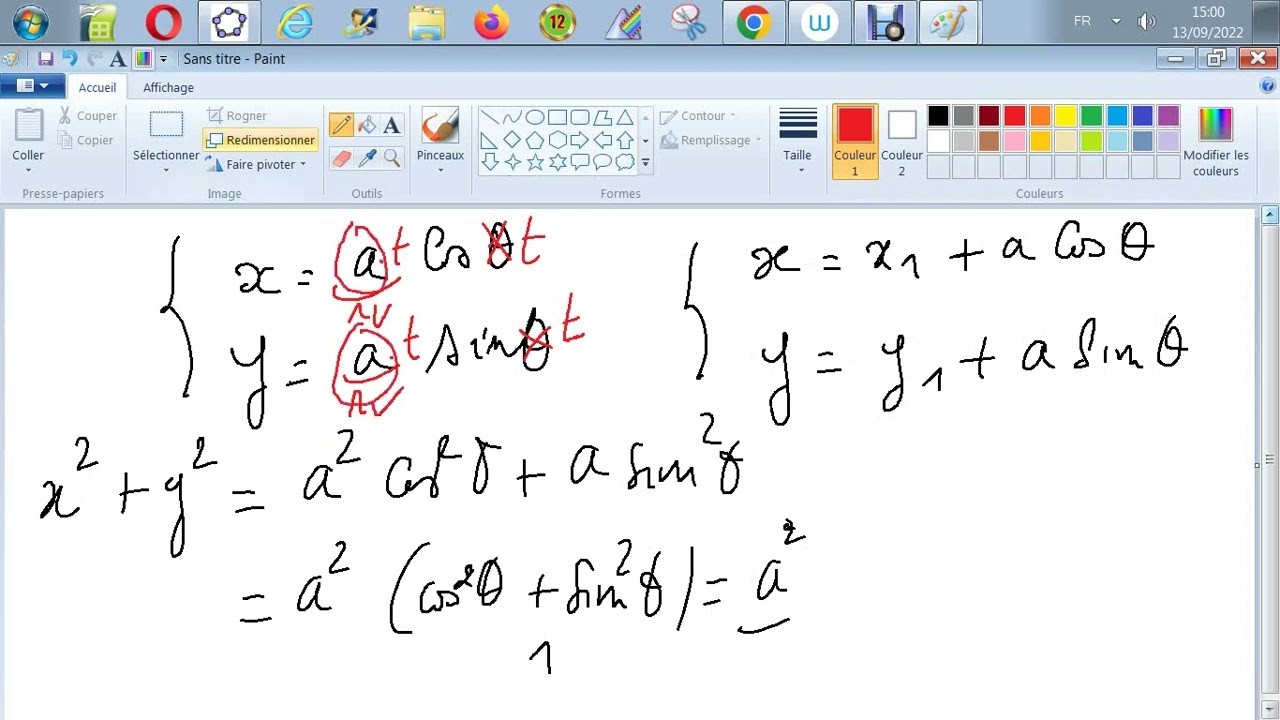 12
W
FR
15:00
13/09/2022
Sans titre - Paint
Accueil Affichage
Coller
Couper
Copier
Presse-papiers
Sélectionner
Rogner
Redimensionner
Faire pivoter
Image
A
Outils
Pinceaux
Contour
Remplissage
Formes
Taille
Couleur 1
Couleur 2
Modifier les couleurs
Couleurs
x = a t cos θ t
y = a t sin θ t
x = x₁ + a cos θ
y = y₁ + a sin θ
x² + y² = a² cos² θ + a sin² θ
= a² (cos² θ + sin² θ) = a²
1